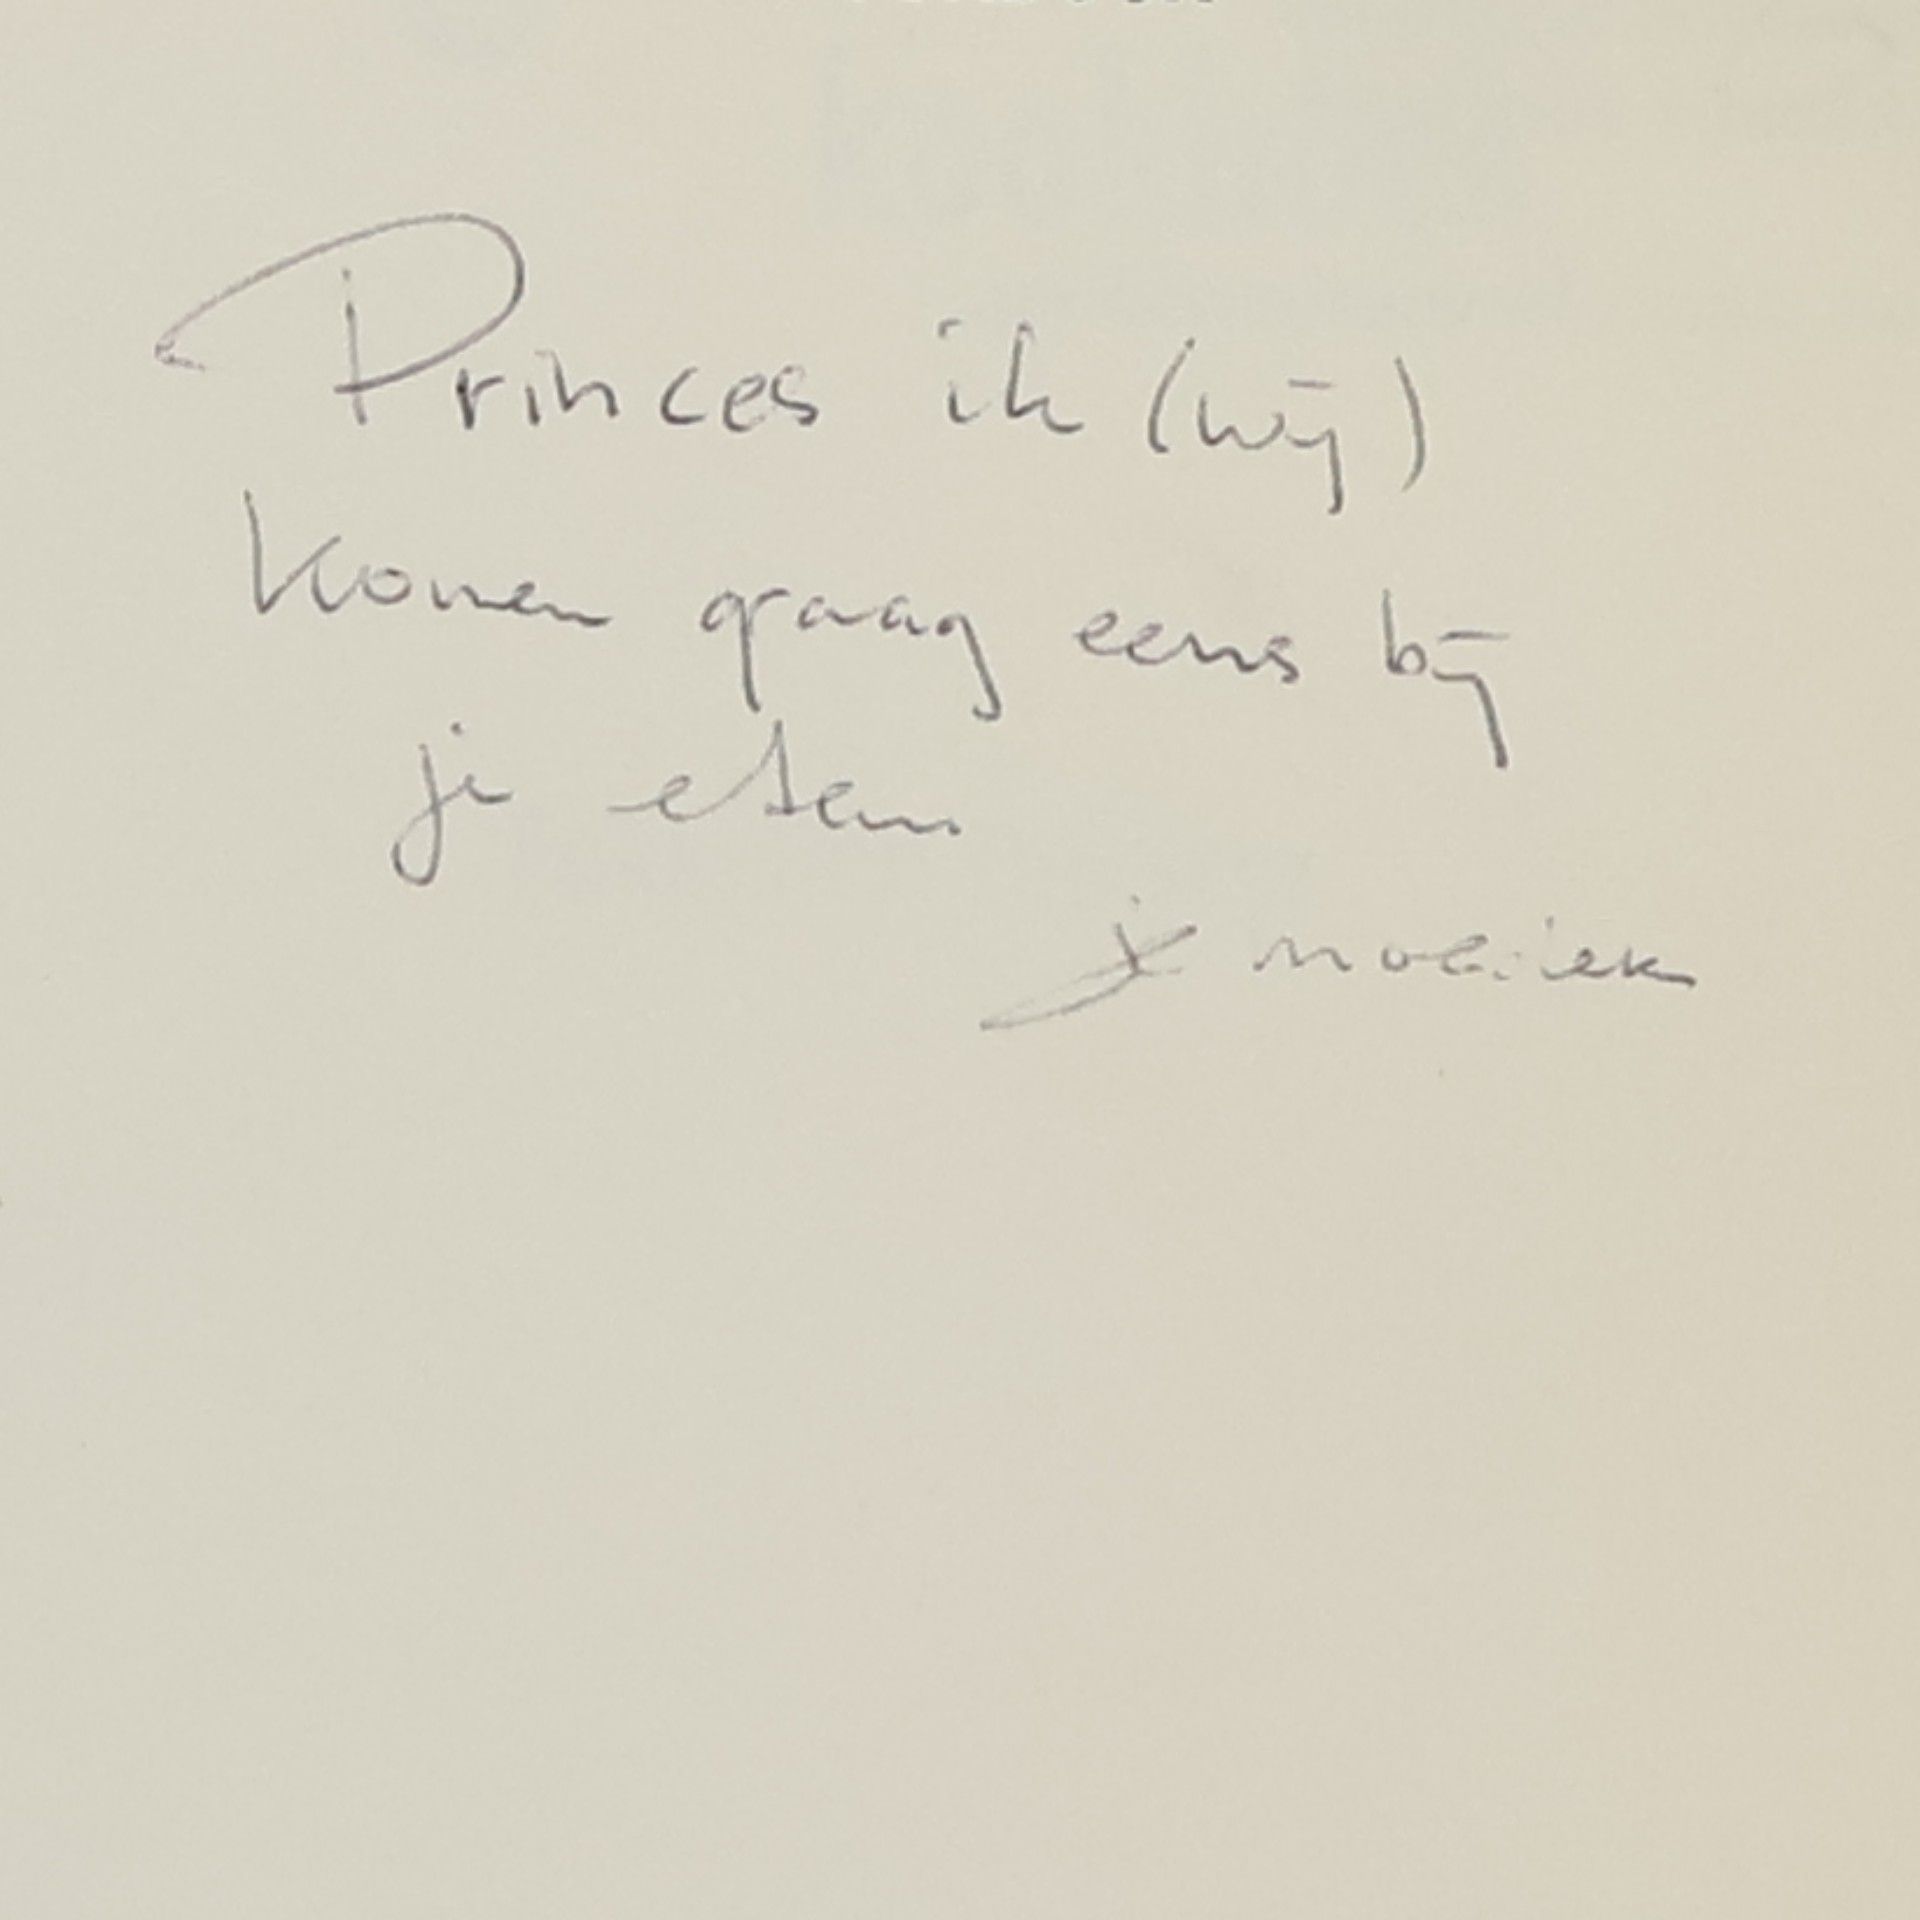 Princes ik (wij)
komen graag eens bij
je eten
x